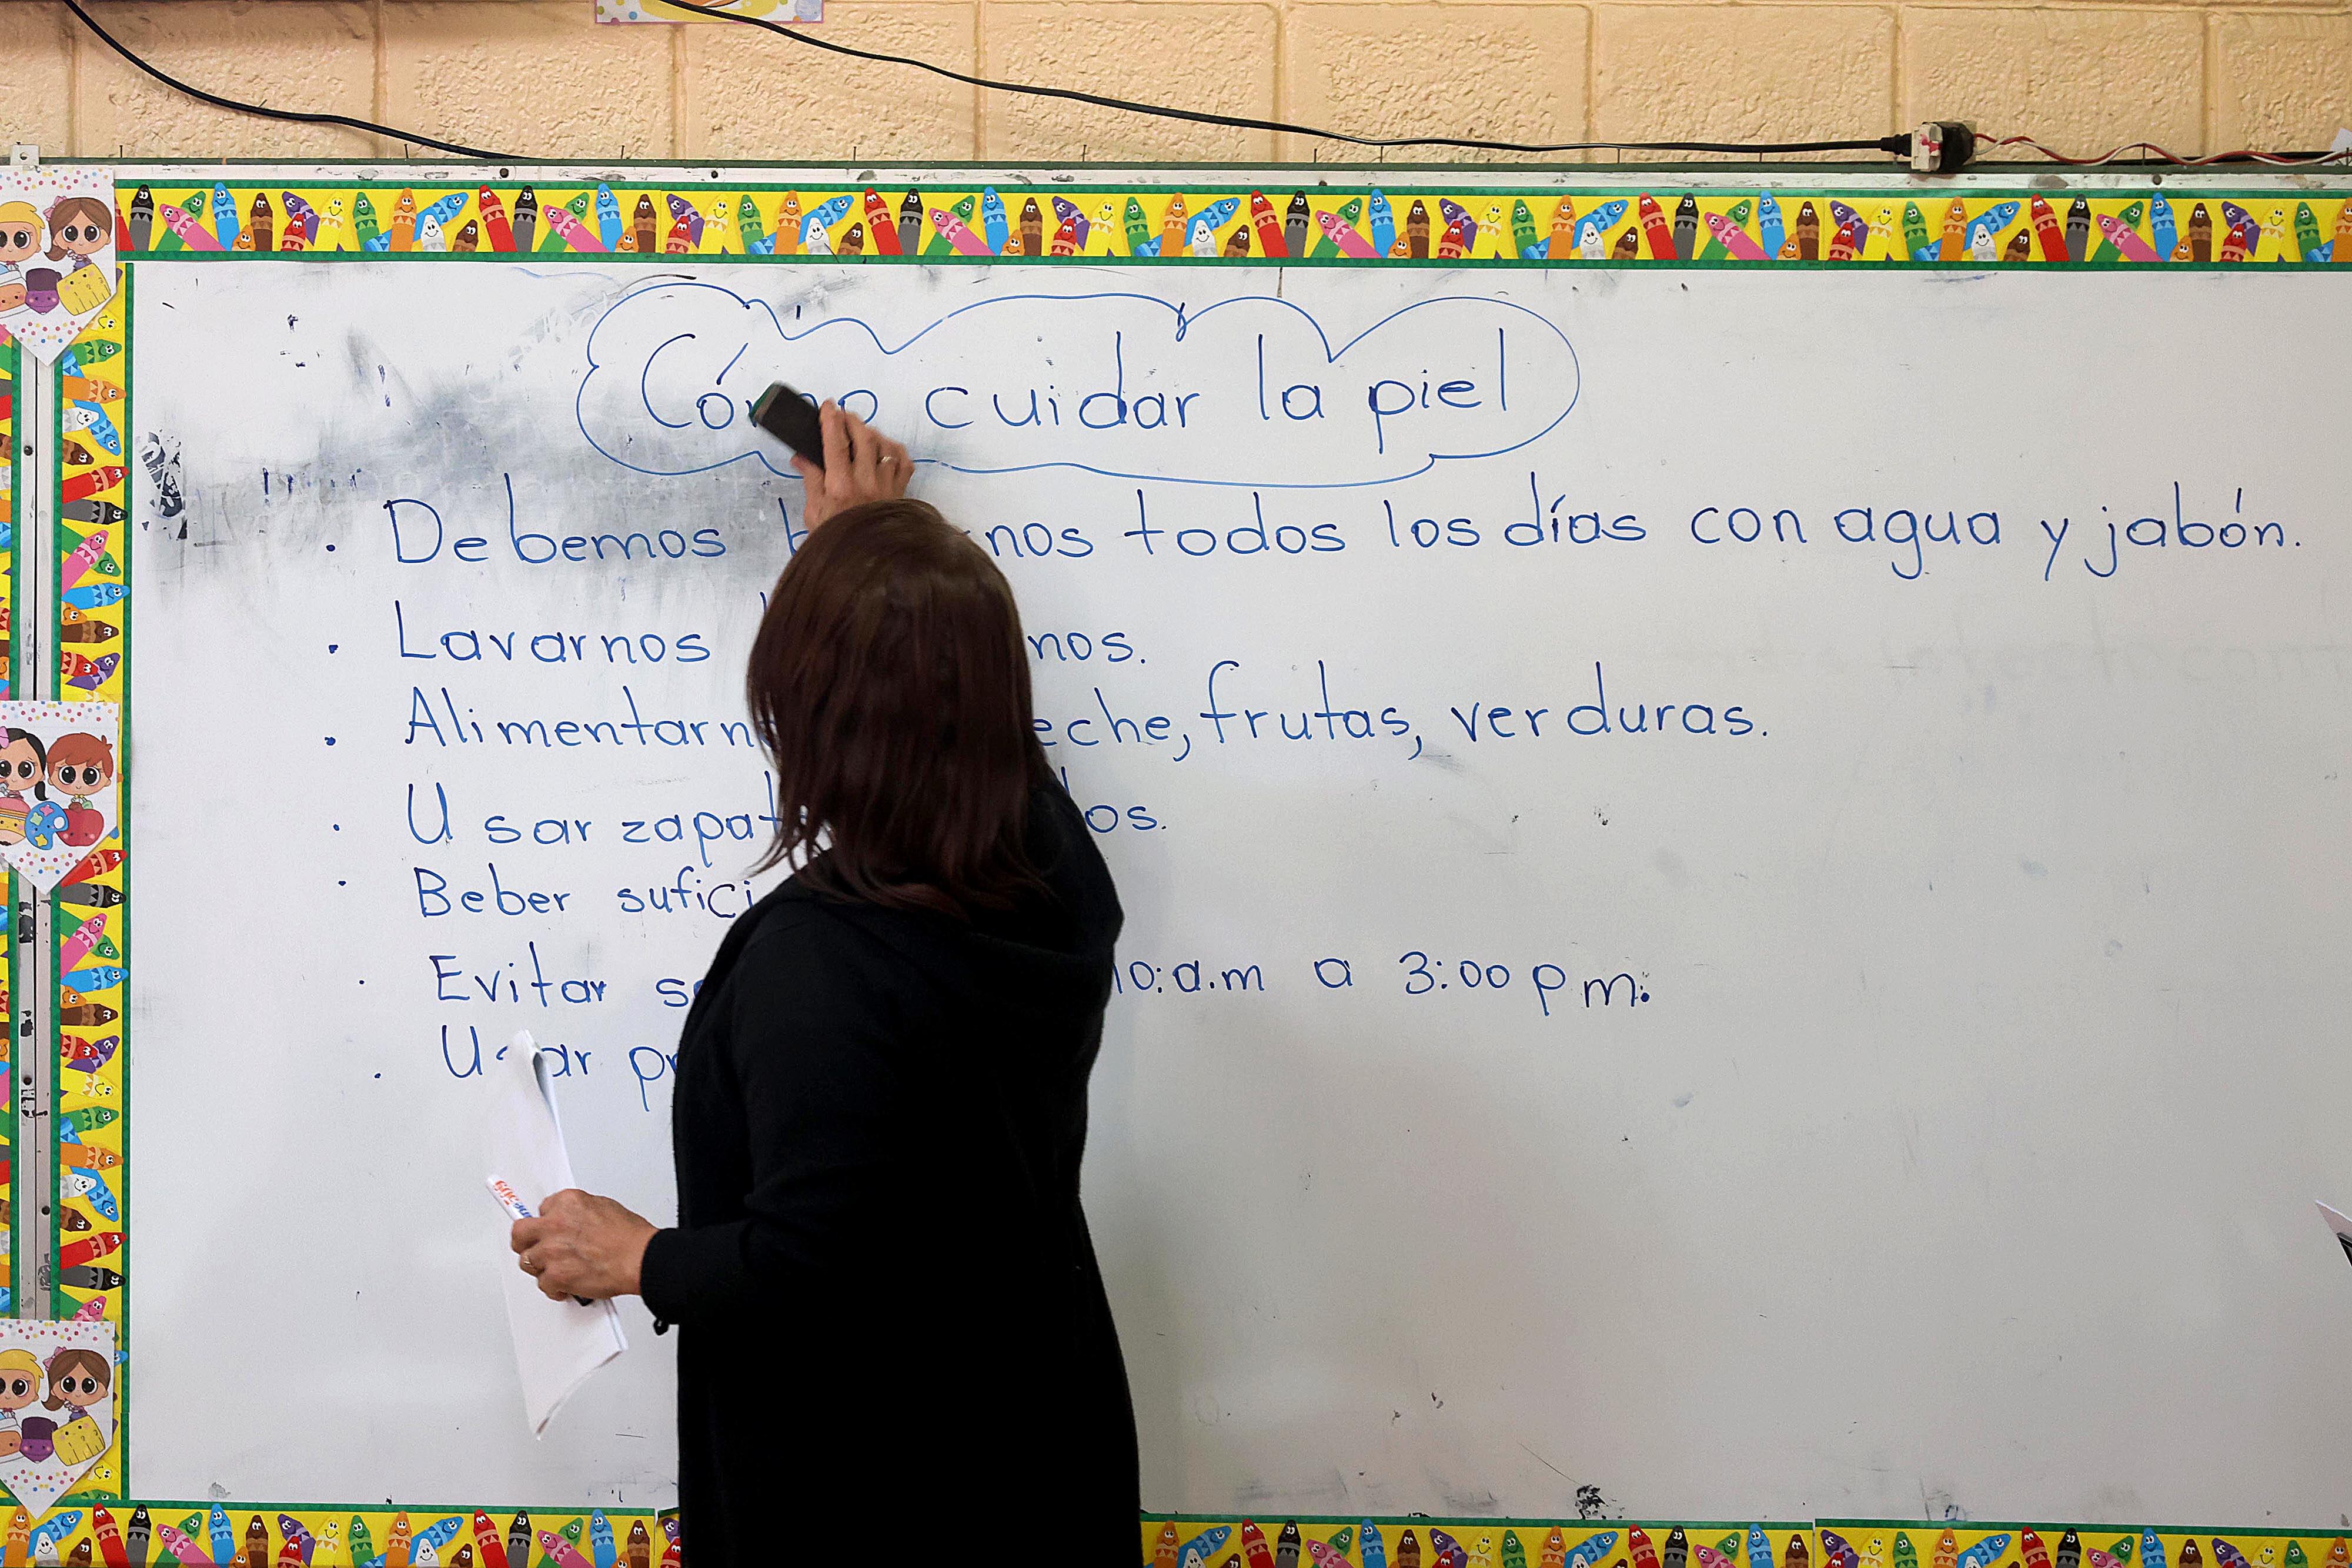 Cómo cuidar la piel
. Debemos nos todos los días con agua y jabón.
. Lavarnos nos.
. Alimentarn eche, frutas, verduras.
. Usar zapat dos.
. Beber sufici
. Evitar 10:a.m a 3:00 p m.
. Usar pr